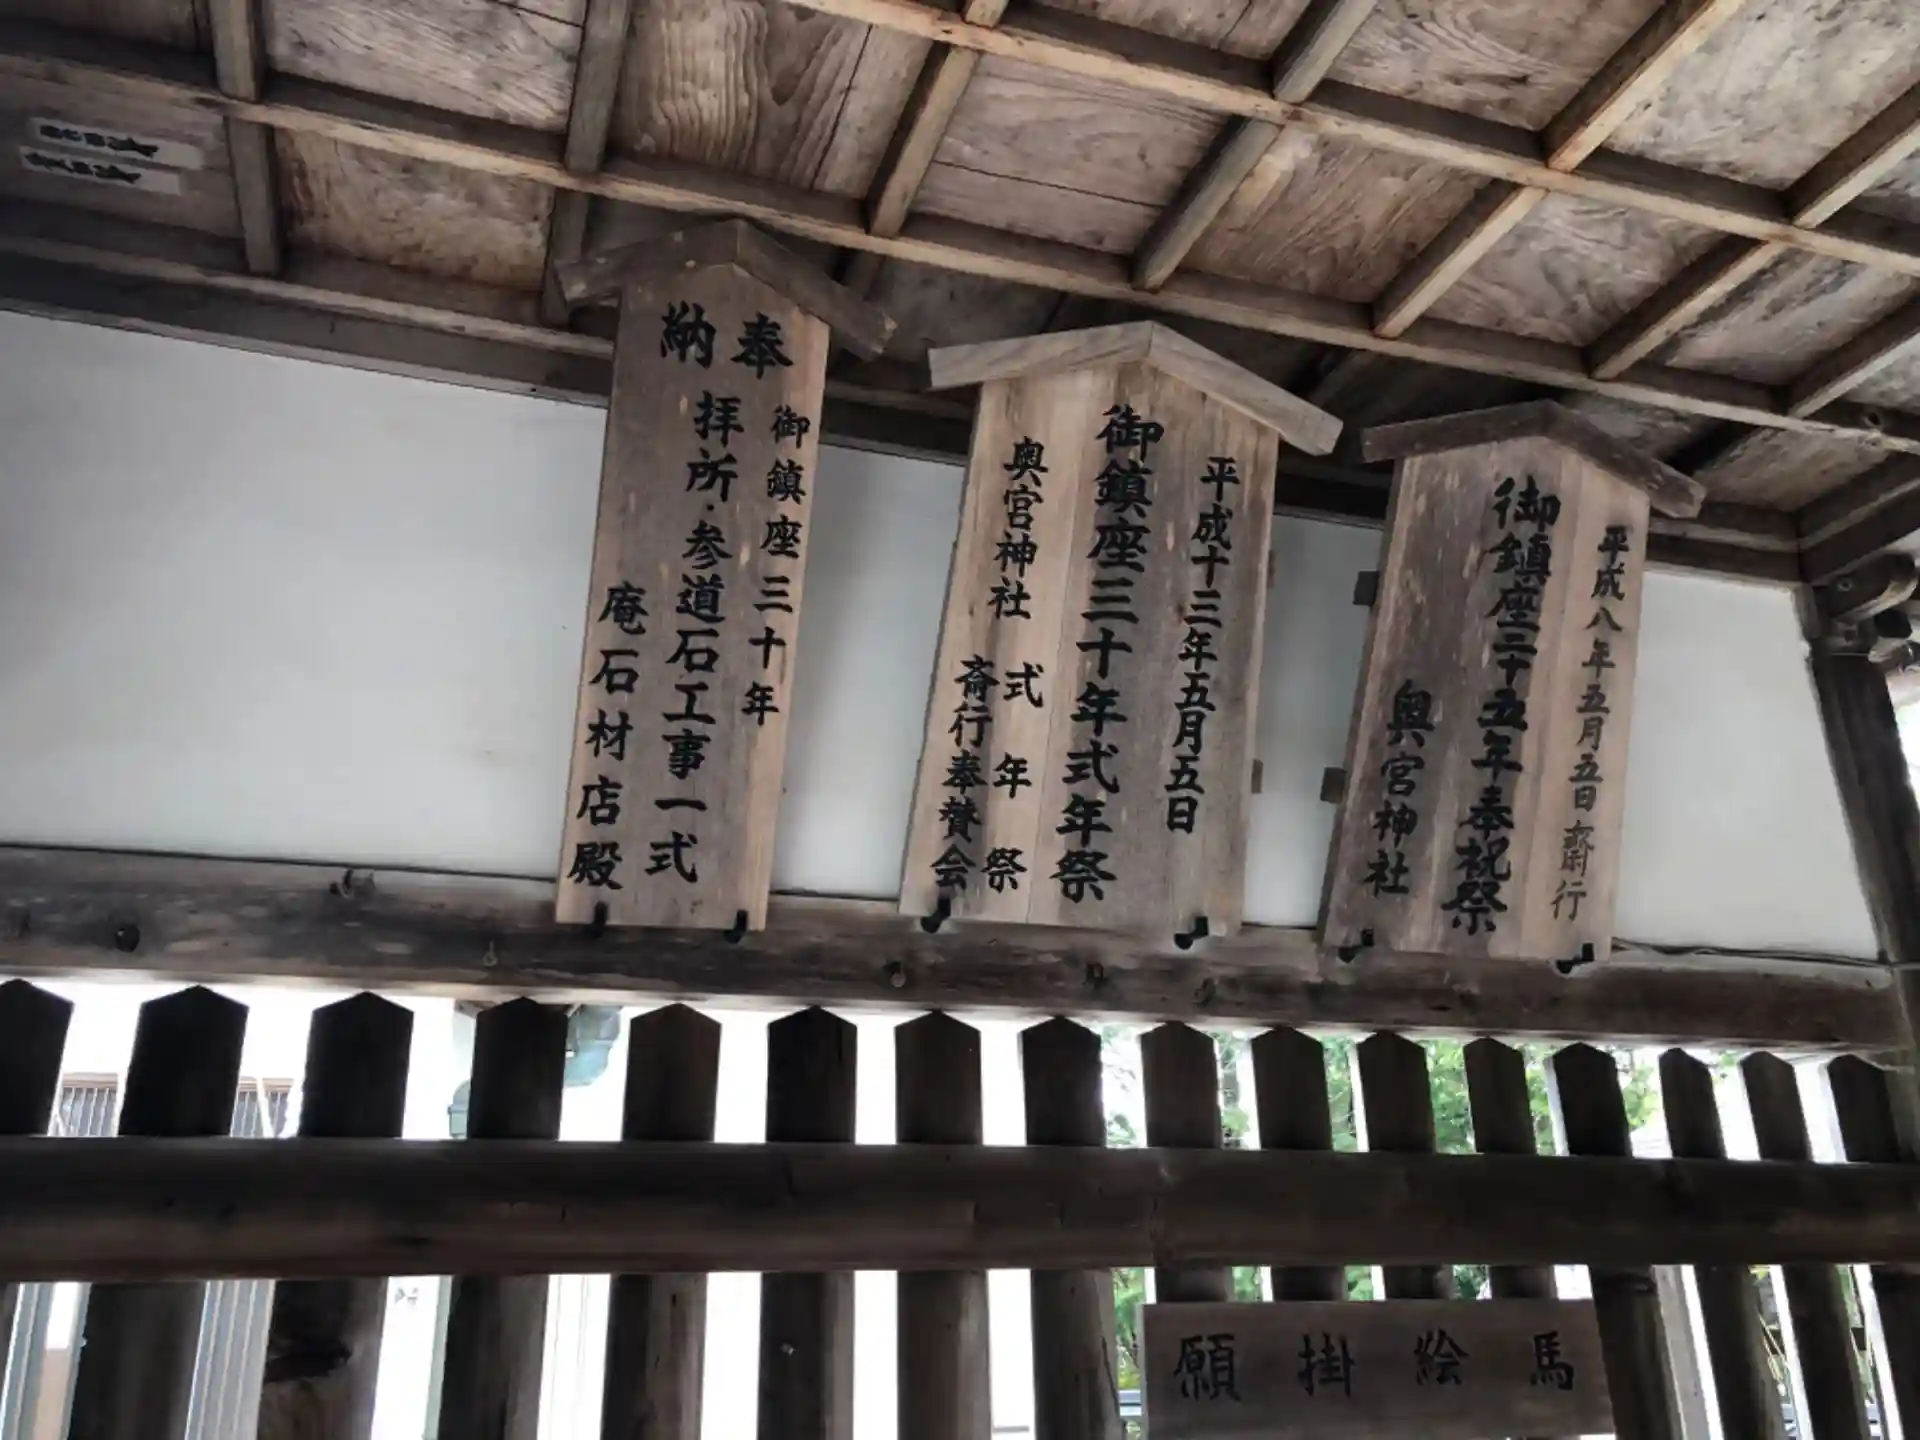 奉納
御鎮座三十年
拝所・参道石工事一式
庵石材店殿
平成十三年五月五日
御鎮座三十年式年祭
奥宮神社
式年祭
斎行奉賛会
平成八年五月五日斎行
御鎮座二十五年奉祝祭
奥宮神社
願掛絵馬